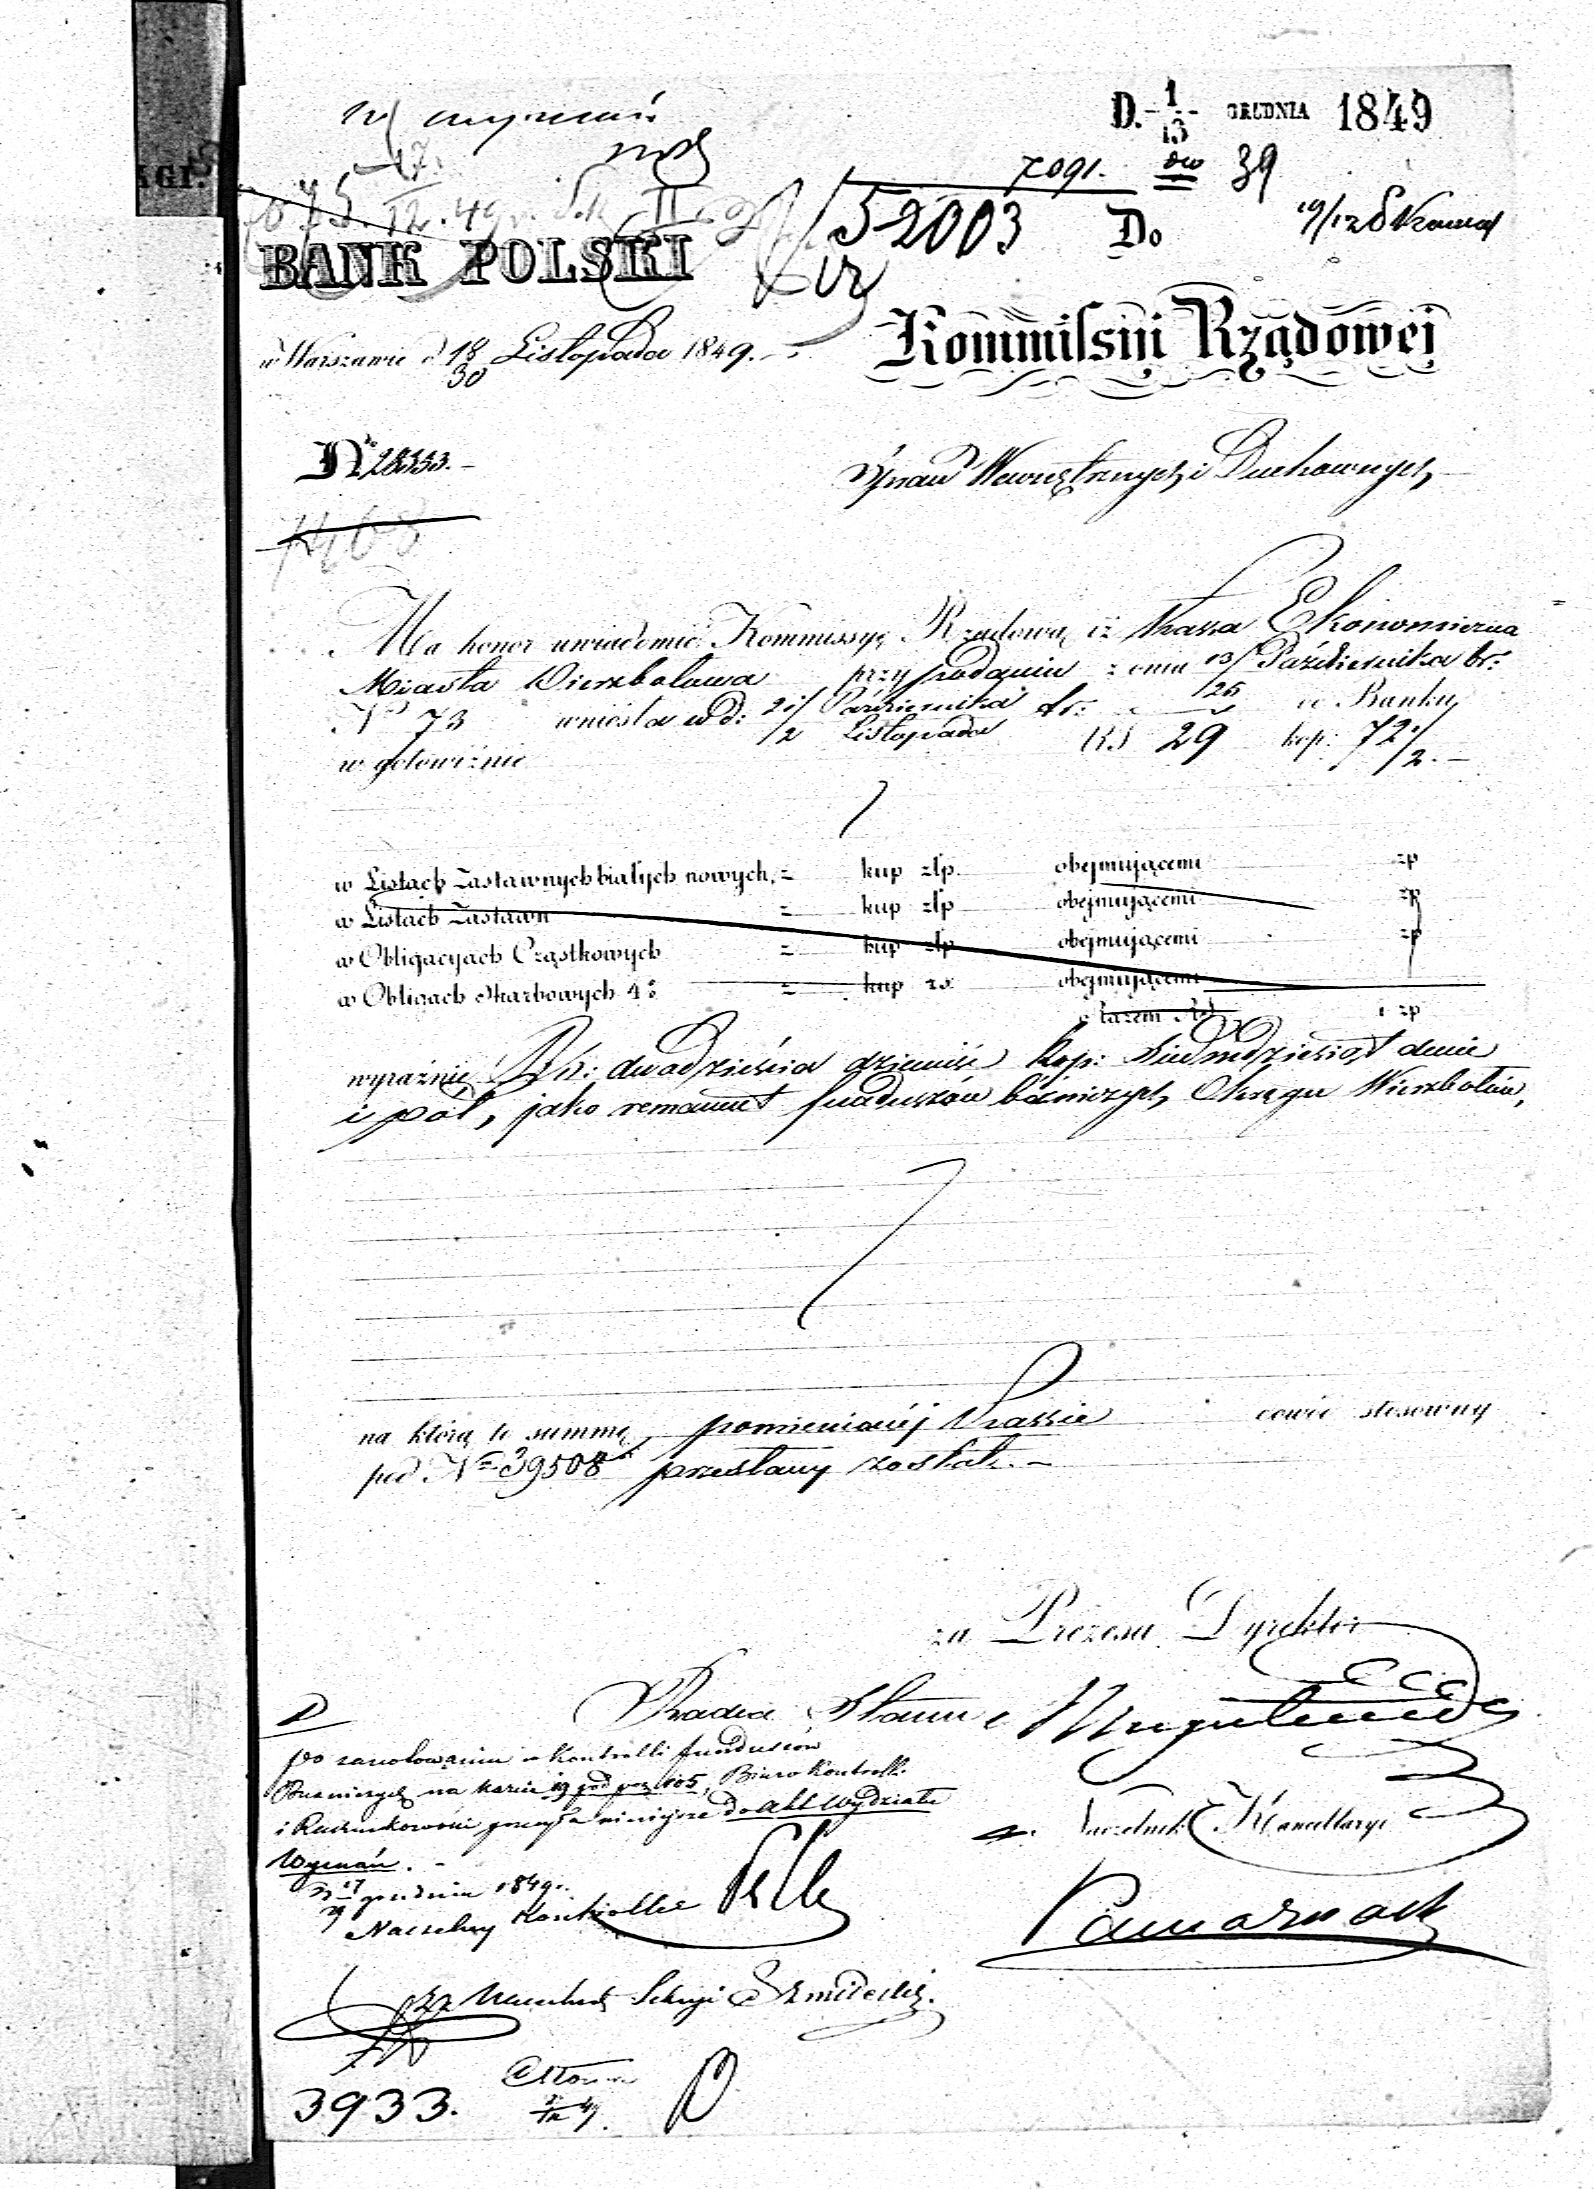 D. 1/13 GRUDNIA 1849
7091. 39
52003
BANK POLSKI
Do
w Warszawie d 18/30 Listopada 1849.
Kommissyi Rządowej
No 28333.
Spraw Wewnętrznych i Duchownych
Ma honor uwiadomić Kommissyę Rządową iż Kassa Ekonomiczna
Miasta Wierzbolowa przy podaniu z dnia 13/25 Października br:
No 73 wniosła w d: 21/2 Października/Listopada br: do Banku
w gotowiźnie RS 29 kop: 72 1/2.
w Listach Zastawnych białych nowych, = kup złp. obejmującemi zp
w Listach Zastawn = kup złp obejmującemi zp
w Obligacyach Cząstkowych = kup złp obejmującemi zp
w Obligach Skarbowych 4% = kup rs. obejmującemi
razem RS i zp
wyraźnie Rs: dwadzieścia dziewięć kop: siedmdziesiąt dwie
i pół, jako remanent funduszów bóżniczych Okręgu Wierzbołów,
na którą to summę pomienionéj Kassie dowód stosowny
pod No 39508 przesłany został. -
za Prezesa Dyrektor
Radca Stanu
D
po zanotowaniu w Kontrolli funduszów
Bużniczych na karcie 19 pod poz 105, Biuro Kontrolli
i Rachunkowości przesyła niniejsze do akt Wydziału
Wyznań. -
17/29 grudnia 1849.
Naczelny Kontroller
Naczelnik Kancellaryi
za Naczelnik Sekcyi
3933.